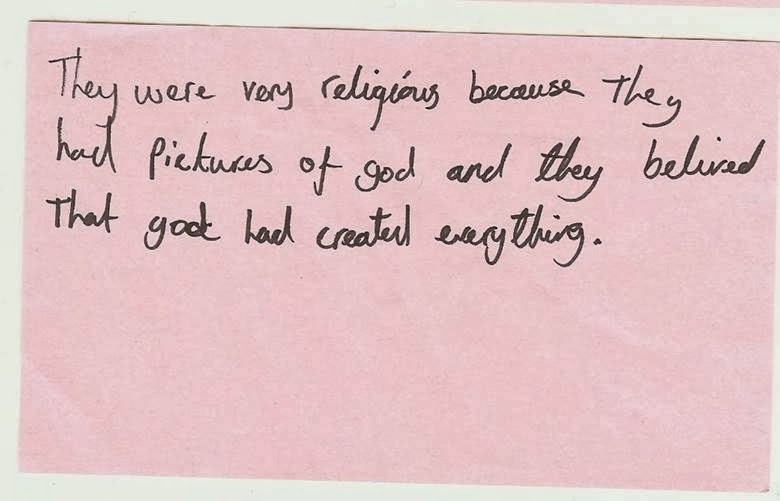 They were very religious because they
had pictures of god and they belived
That god had created everything.